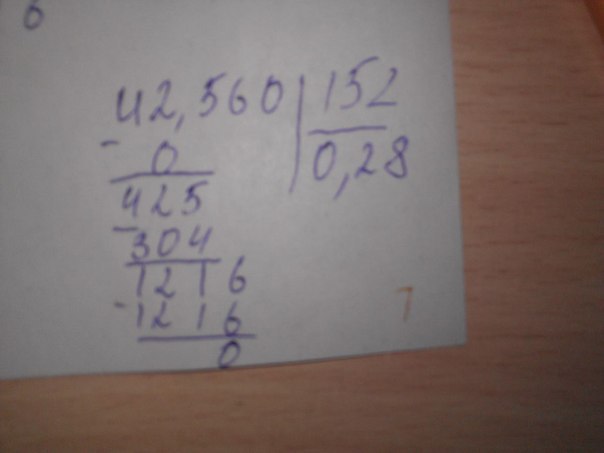 6
42,560 152
- 0 0,28
425
- 304
1216
- 1216
0